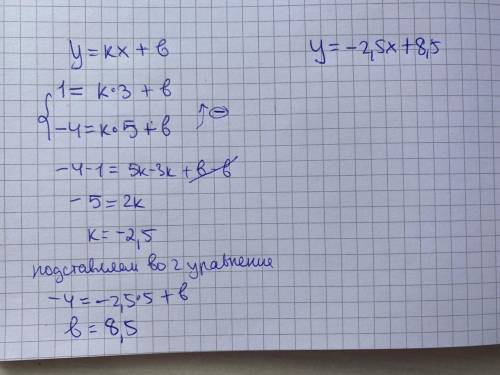 y = kx + b
1 = k·3 + b
-4 = k·5 + b
-4-1 = 5k-3k + b-b
-5 = 2k
k = -2,5
подставляем во 2 уравнение
-4 = -2,5·5 + b
b = 8,5
y = -2,5x + 8,5